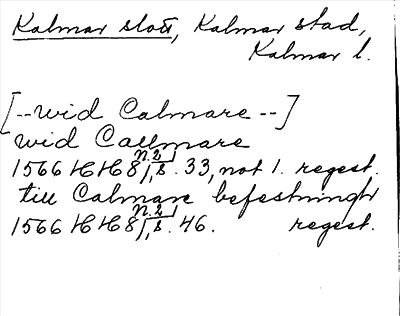 Kalmar slott, Kalmar stad,
Kalmar l.
[--wid Calmare--]
wid Callmare
1566 HH 8 n.2/1, s. 33, not 1. regest.
till Calmare befestningh
1566 HH 8 n.2/1, s. 46. regest.